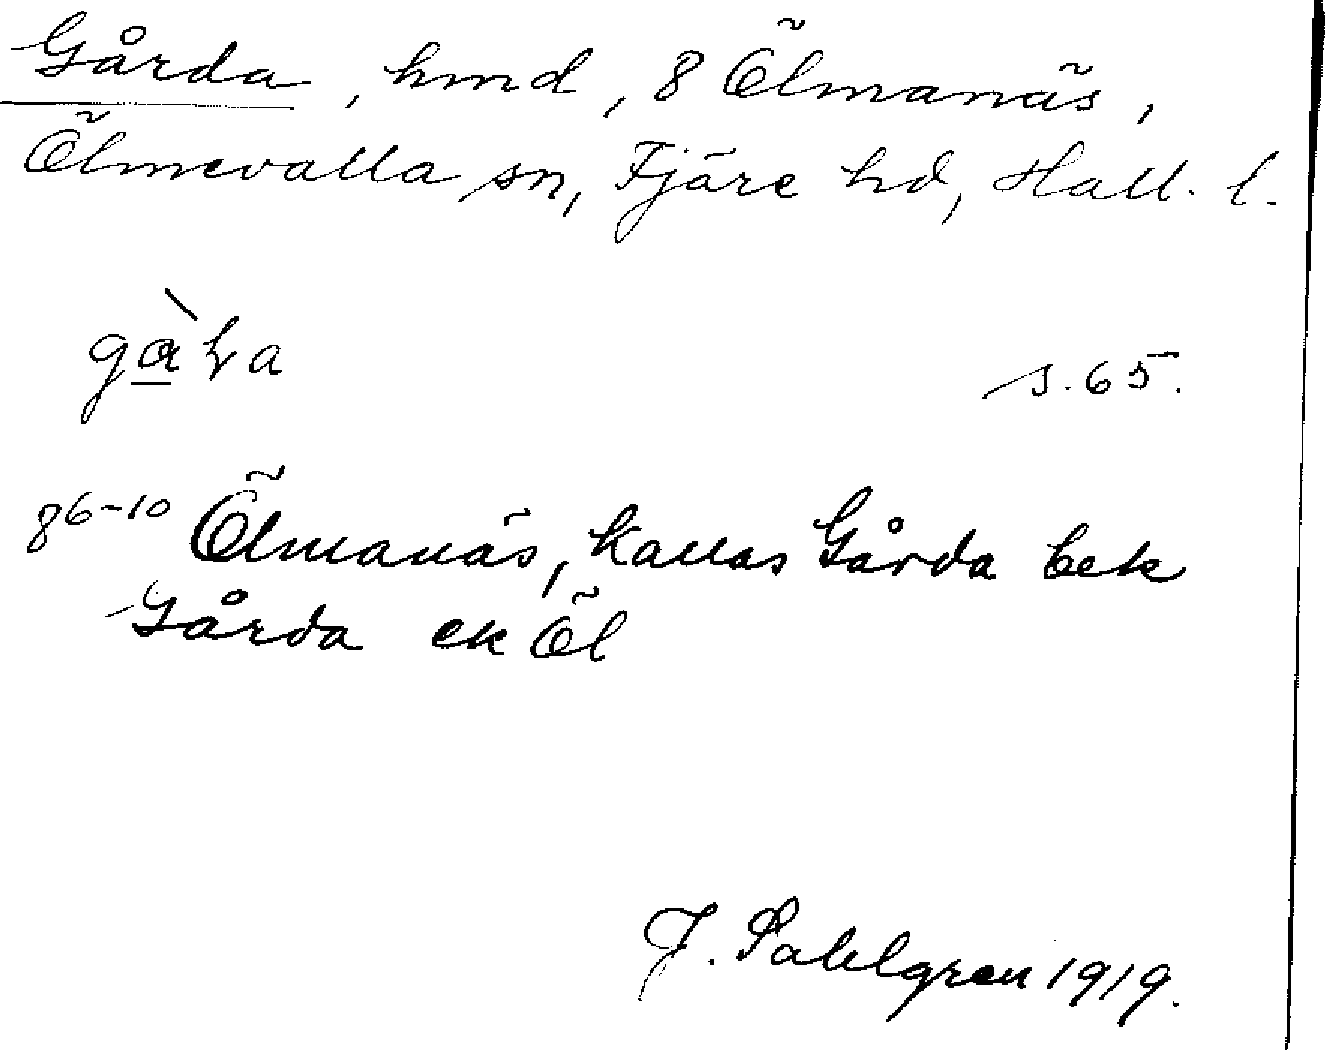 Gårda, hmd, 8 Ölmanäs,
Ölmevalla sn, Fjäre hd, Hall. l.
s. 65.
8⁶⁻¹⁰ Ölmanäs, kallas Gårda bek
Gårda ek Öl
J. Sahlgren 1919.